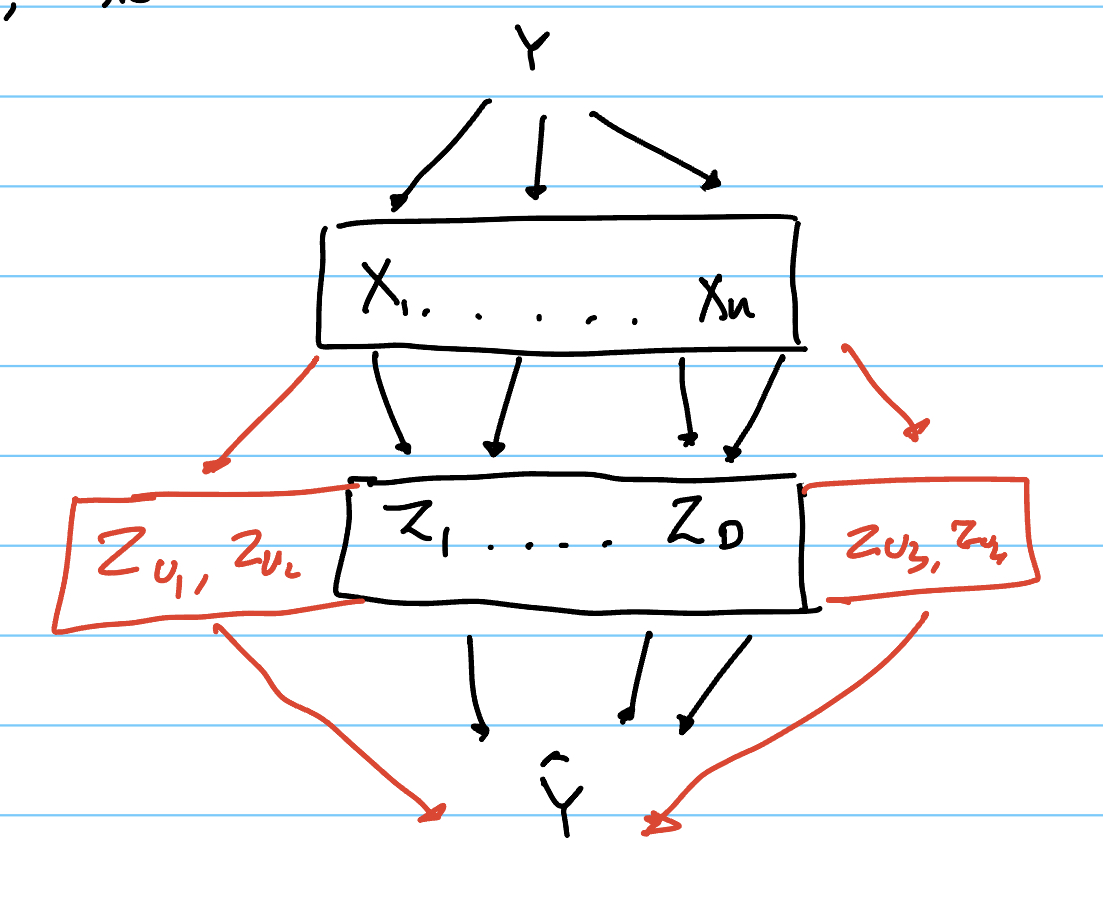 Y
X₁ . . . . . Xn
Zu₁, Zu₂ Z₁ . . . . Z_D Zu₃, Zu₄
Ŷ